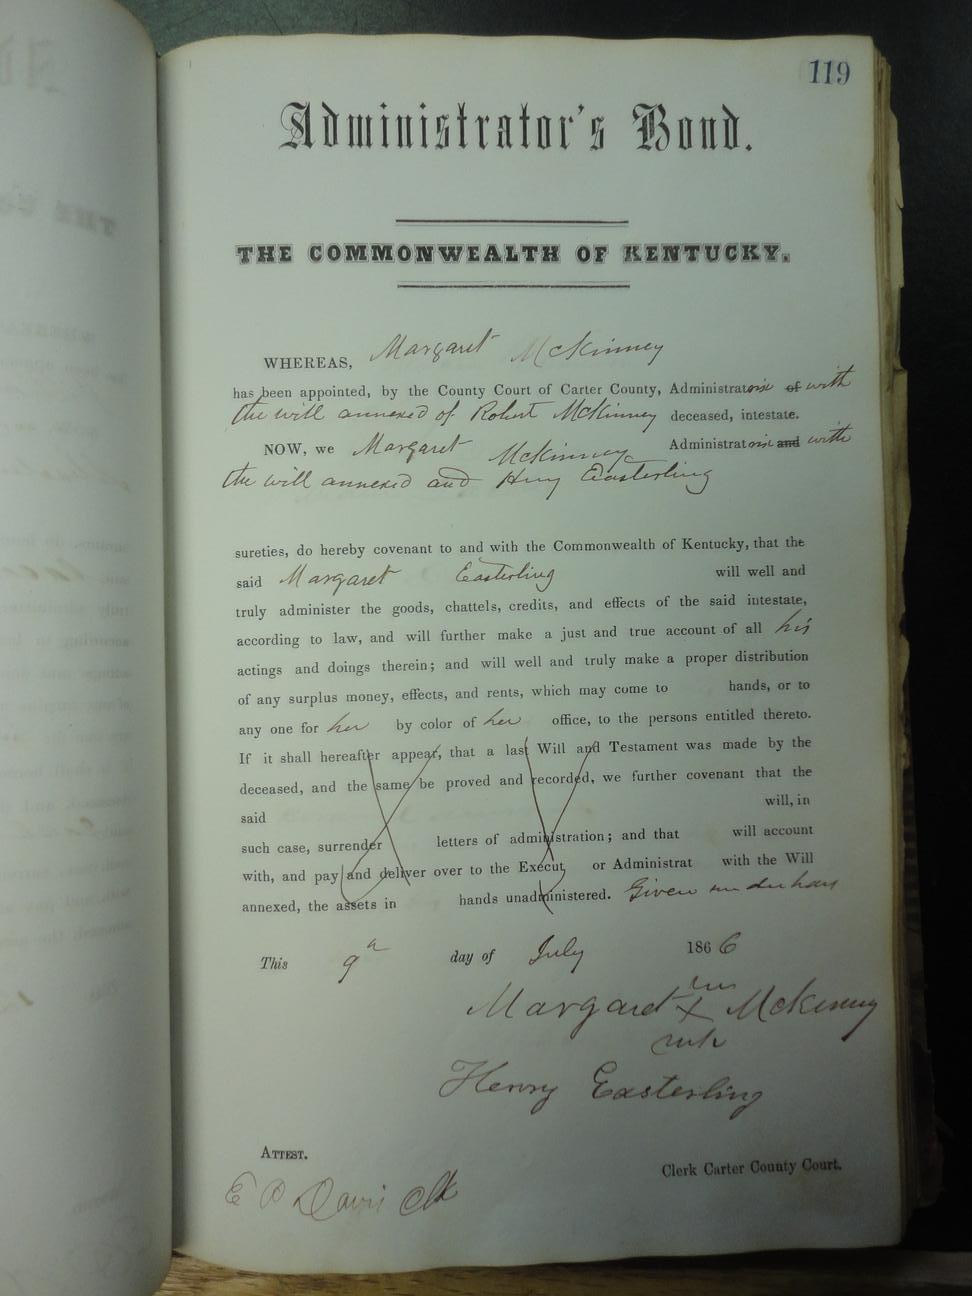 119
Administrator's Bond.
THE COMMONWEALTH OF KENTUCKY.
WHEREAS, Margaret McKinney
has been appointed, by the County Court of Carter County, Administratorix of with
the will annexed of Robert McKinney deceased, intestate.
NOW, we Margaret McKinney Administratorix and with
the will annexed and Henry Easterling
sureties, do hereby covenant to and with the Commonwealth of Kentucky, that the
said Margaret Easterling will well and
truly administer the goods, chattels, credits, and effects of the said intestate,
according to law, and will further make a just and true account of all his
actings and doings therein; and will well and truly make a proper distribution
of any surplus money, effects, and rents, which may come to hands, or to
any one for her by color of her office, to the persons entitled thereto.
If it shall hereafter appear, that a last Will and Testament was made by the
deceased, and the same be proved and recorded, we further covenant that the
said will, in
such case, surrender letters of administration; and that will account
with, and pay and deliver over to the Execut or Administrat with the Will
annexed, the assets in hands unadministered. Given under han
This 9 day of July 1866
Margaret her x McKinney
mark
Henry Easterling
ATTEST.
Clerk Carter County Court.
E B Davis Clk